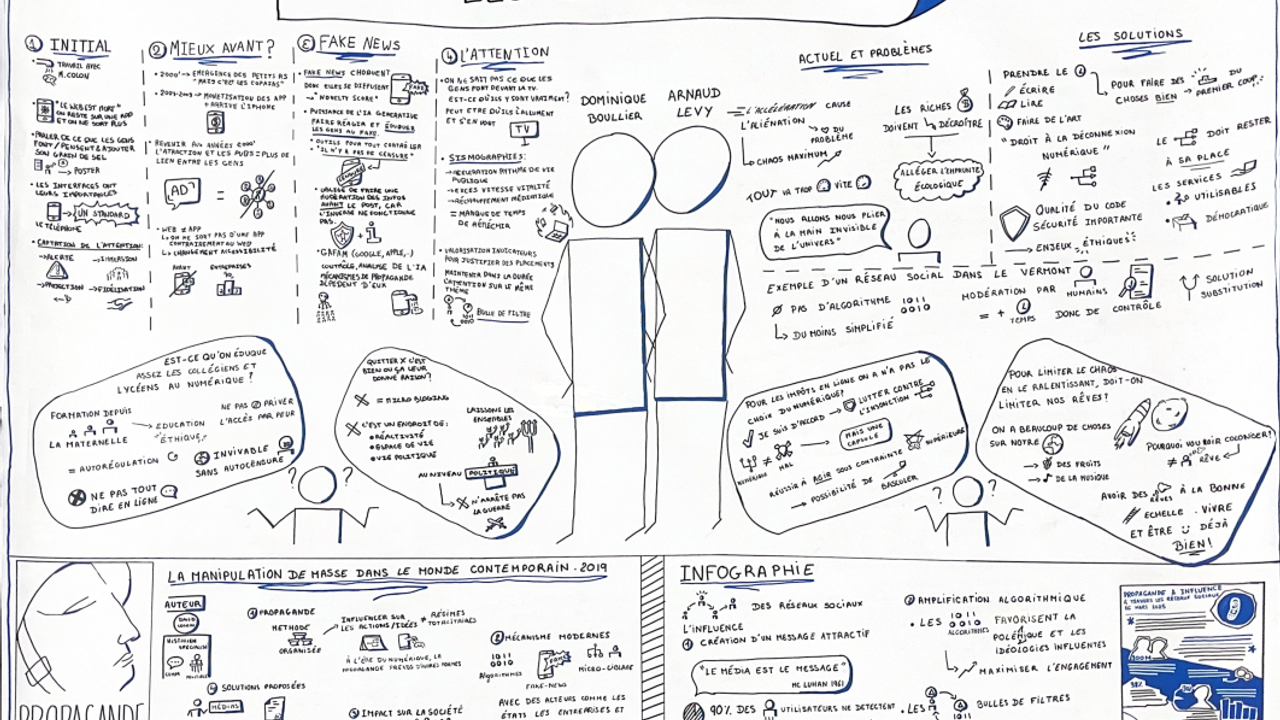 ① INITIAL
→ TRAVAIL AVEC
M. COLON
"LE WEB EST MORT"
ON RESTE SUR UNE APP
ET ON NE SORT PLUS
PARLER DE CE QUE LES GENS
FONT / PENSENT & AJOUTER
SON GRAIN DE SEL
→ POSTER
• LES INTERFACES ONT
LEURS IMPORTANCES
→ UN STANDARD
LE TÉLÉPHONE
• CAPTATION DE L'ATTENTION:
→ ALERTE
→ IMMERSION
→ PROTECTION
→ FIDÉLISATION
② MIEUX AVANT?
• 2000' → ÉMERGENCE DES PETITS RS
"MAIS C'EST LES COPAINS"
→ MONÉTISATION DES APP
+ ARRIVÉE L'IPHONE
• REVENIR AUX ANNÉES 2000'
L'ATTRACTION ET LES PUBS = PLUS DE
LIEN ENTRE LES GENS
AD
=
• WEB ≠ APP
↳ ON NE SORT PAS D'UNE APP
CONTRAIREMENT AU WEB
↳ CHANGEMENT ACCESSIBILITÉ
AVANT
ENTREPRISES
③ FAKE NEWS
• FAKE NEWS CHOQUENT
DONC ELLES SE DIFFUSENT
→ "NOVELTY SCORE"
FAKE
• PUISSANCE DE L'IA GENERATIVE
FAIRE RÉAGIR ET ÉDUQUER
LES GENS AU FAKE.
• OUTILS POUR TOUT CONTRÔLER
"IL N'Y A PAS DE CENSURE"
CENSURÉ
• OBLIGÉ DE FAIRE UNE
MODÉRATION DES INFOS
AVANT LE POST, CAR
L'INVERSE NE FONCTIONNE
PAS.
+ 1
• GAFAM (GOOGLE, APPLE,..)
CONTRÔLE, ANALYSE DE L'IA
MÉCANISMES DE PROPAGANDE
DÉPENDENT D'EUX
④ L'ATTENTION
• ON NE SAIT PAS CE QUE LES
GENS FONT DEVANT LA TV.
EST-CE QU'ILS Y SONT VRAIMENT?
PEUT ÊTRE QU'ILS L'ALLUMENT
ET S'EN VONT
TV
• SISMOGRAPHIES:
→ ACCÉLÉRATION RYTHME DE VIE
PUBLIQUE
→ EXCÈS VITESSE VITALITÉ
→ RÉCHAUFFEMENT MÉDIATIQUE
= MANQUE DE TEMPS
DE RÉFLÉCHIR
• VALORISATION INDICATEURS
POUR JUSTIFIER DES PLACEMENTS
MAINTENIR DANS LA DURÉE
L'ATTENTION SUR LE MÊME
THÈME
BULLE DE FILTRE
DOMINIQUE
BOULLIER
ARNAUD
LEVY
ACTUEL ET PROBLÈMES
L'ACCÉLÉRATION CAUSE
L'ALIÉNATION
↳ ♡ DU
PROBLÈME
↳ CHAOS MAXIMUM
TOUT VA TROP VITE
"NOUS ALLONS NOUS PLIER
À LA MAIN INVISIBLE
DE L'UNIVERS"
LES RICHES $
DOIVENT ↳ DÉCROÎTRE
ALLÉGER L'EMPREINTE
ÉCOLOGIQUE
LES SOLUTIONS
PRENDRE LE
ÉCRIRE
LIRE
→ POUR FAIRE DES
CHOSES BIEN →
DU
PREMIER COUP
FAIRE DE L'ART
"DROIT À LA DÉCONNEXION
NUMÉRIQUE"
QUALITÉ DU CODE
SÉCURITÉ IMPORTANTE
→ ENJEUX "ÉTHIQUES"
LE DOIT RESTER
À SA PLACE
LES SERVICES
• + UTILISABLES
• DÉMOCRATIQUE
EXEMPLE D'UN RÉSEAU SOCIAL DANS LE VERMONT
Ø PAS D'ALGORITHME 1011
0010
↳ DU MOINS SIMPLIFIÉ
MODÉRATION PAR HUMAINS
= + TEMPS DONC DE CONTRÔLE
SOLUTION
SUBSTITUTION
EST-CE QU'ON ÉDUQUE
ASSEZ LES COLLÉGIENS ET
LYCÉENS AU NUMÉRIQUE?
FORMATION DEPUIS
LA MATERNELLE
→ EDUCATION
"ÉTHIQUE"
NE PAS PRIVER
L'ACCÈS PAR PEUR
= AUTORÉGULATION
INVIVABLE
SANS AUTOCENSURE
NE PAS TOUT
DIRE EN LIGNE
? ?
QUITTER X C'EST
BIEN OU ÇA LEUR
DONNE RAISON?
X = MICRO BLOGGING
X C'EST UN ENDROIT DE:
• RÉACTIVITÉ
• ESPACE DE VIE
• VIE POLITIQUE
LAISSONS LES
ENSEMBLES
AU NIVEAU POLITIQUE
↳ X N'ARRÊTE PAS
LA GUERRE
POUR LES IMPÔTS EN LIGNE ON A N'A PAS LE
CHOIX DU NUMÉRIQUE?
JE SUIS D'ACCORD → LUTTER CONTRE
L'INJONCTION
≠
NUMÉRIQUE
MAL
→ MAIS UNE
CAPSULE
NUMÉRIQUE
RÉUSSIR À AGIR SOUS CONTRAINTE
→ POSSIBILITÉ DE BASCULER
? ?
POUR LIMITER LE CHAOS
EN LE RALENTISSANT, DOIT-ON
LIMITER NOS RÊVES?
ON A BEAUCOUP DE CHOSES
SUR NOTRE
→ DES FRUITS
→ DE LA MUSIQUE
POURQUOI VOULOIR COLONISER?
≠ RÊVE
AVOIR DES RÊVES À LA BONNE
ECHELLE. VIVRE
ET ÊTRE DÉJÀ
BIEN!
LA MANIPULATION DE MASSE DANS LE MONDE CONTEMPORAIN - 2019
AUTEUR
DAVID
COLON
HISTORIEN
SPÉCIALISÉ
① PROPAGANDE
METHODE
ORGANISÉE
INFLUENCER SUR
LES ACTIONS/IDÉES
• RÉGIMES
TOTALITAIRES
À L'ÈRE DU NUMÉRIQUE, LA
PROPAGANDE PREND D'AUTRES FORMES
② MÉCANISME MODERNES
1011
0010
ALGORITHMES
FAKE-NEWS
MICRO-CIBLAGE
AVEC DES ACTEURS COMME LES
ÉTATS LES ENTREPRISES ET
SOLUTIONS PROPOSÉES
MÉDIAS
③ IMPACT SUR LA SOCIÉTÉ
PROPAGANDE
INFOGRAPHIE
L'INFLUENCE
DES RÉSEAUX SOCIAUX
① CRÉATION D'UN MESSAGE ATTRACTIF
"LE MÉDIA EST LE MESSAGE"
MC LUHAN 1961
90% DES UTILISATEURS NE DETECTENT
② AMPLIFICATION ALGORITHMIQUE
• LES 1011
0010
ALGORITHMES
FAVORISENT LA
POLÉMIQUE ET LES
IDÉOLOGIES INFLUENTES
↳ MAXIMISER L'ENGAGEMENT
• LES BULLES DE FILTRES
PROPAGANDE & INFLUENCE
À TRAVERS LES RÉSEAUX SOCIAUX